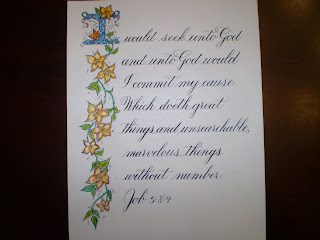 I would seek unto God
and unto God would
I commit my cause
Which doeth great
things and unsearchable,
marvelous things
without number.
Job 5:8-9